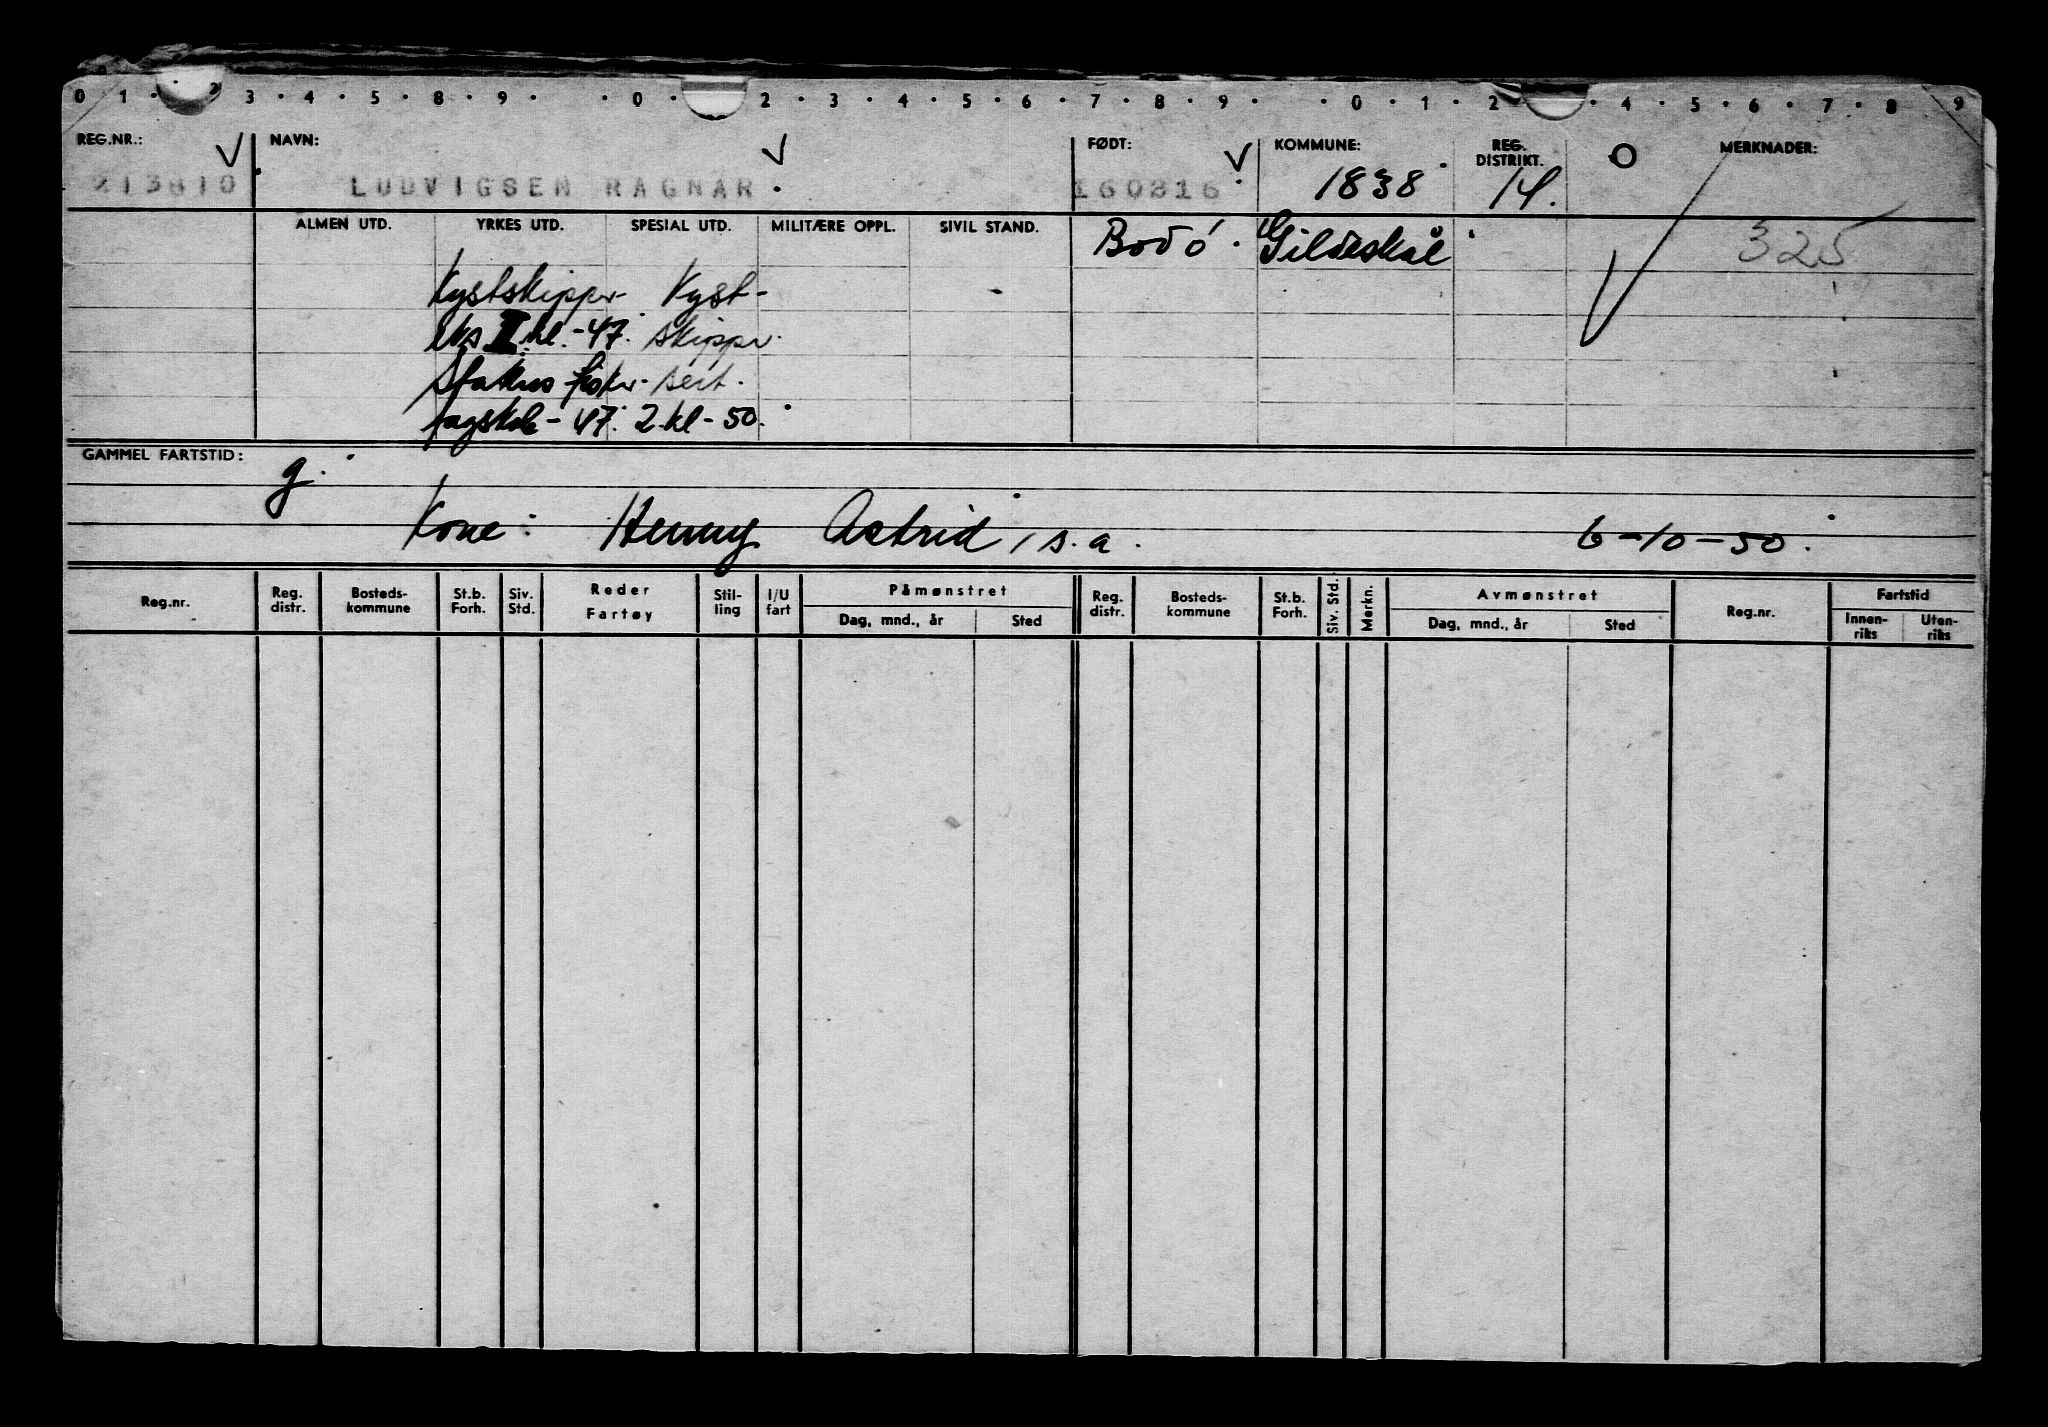 0 1 · 2 3 · 4 · 5 · 8 · 9 · · 0 · 2 · 3 · 4 · 5 · 6 · 7 · 8 · 9 · · 0 · 1 · 2 · 4 · 5 · 6 · 7 · 8 9
REG.NR.: NAVN: FØDT: KOMMUNE: REG. DISTRIKT. MERKNADER:
LUDVIGSEN RAGNAR 1838 14.
ALMEN UTD. YRKES UTD. SPESIAL UTD. MILITÆRE OPPL. SIVIL STAND. Bodó. Gildeskål 325
Kystskippr- Kyst-
eks II kl.-47. skippr.
Statens fisker- sert.
fagskole-47. 2.kl-50.
GAMMEL FARTSTID: g.
Kone: Henny Astrid, s.a. 6-10-50.
Reg.nr. Reg. distr. Bosteds- kommune St.b. Forh. Siv. Std. Reder Fartøy Stil- ling I/U fart Påmønstret Dag, mnd., år Sted Reg. distr. Bosteds- kommune St.b. Forh. Siv. Std. Merkn. Avmønstret Dag, mnd., år Sted Reg.nr. Fartstid Innen- riks Uten- riks